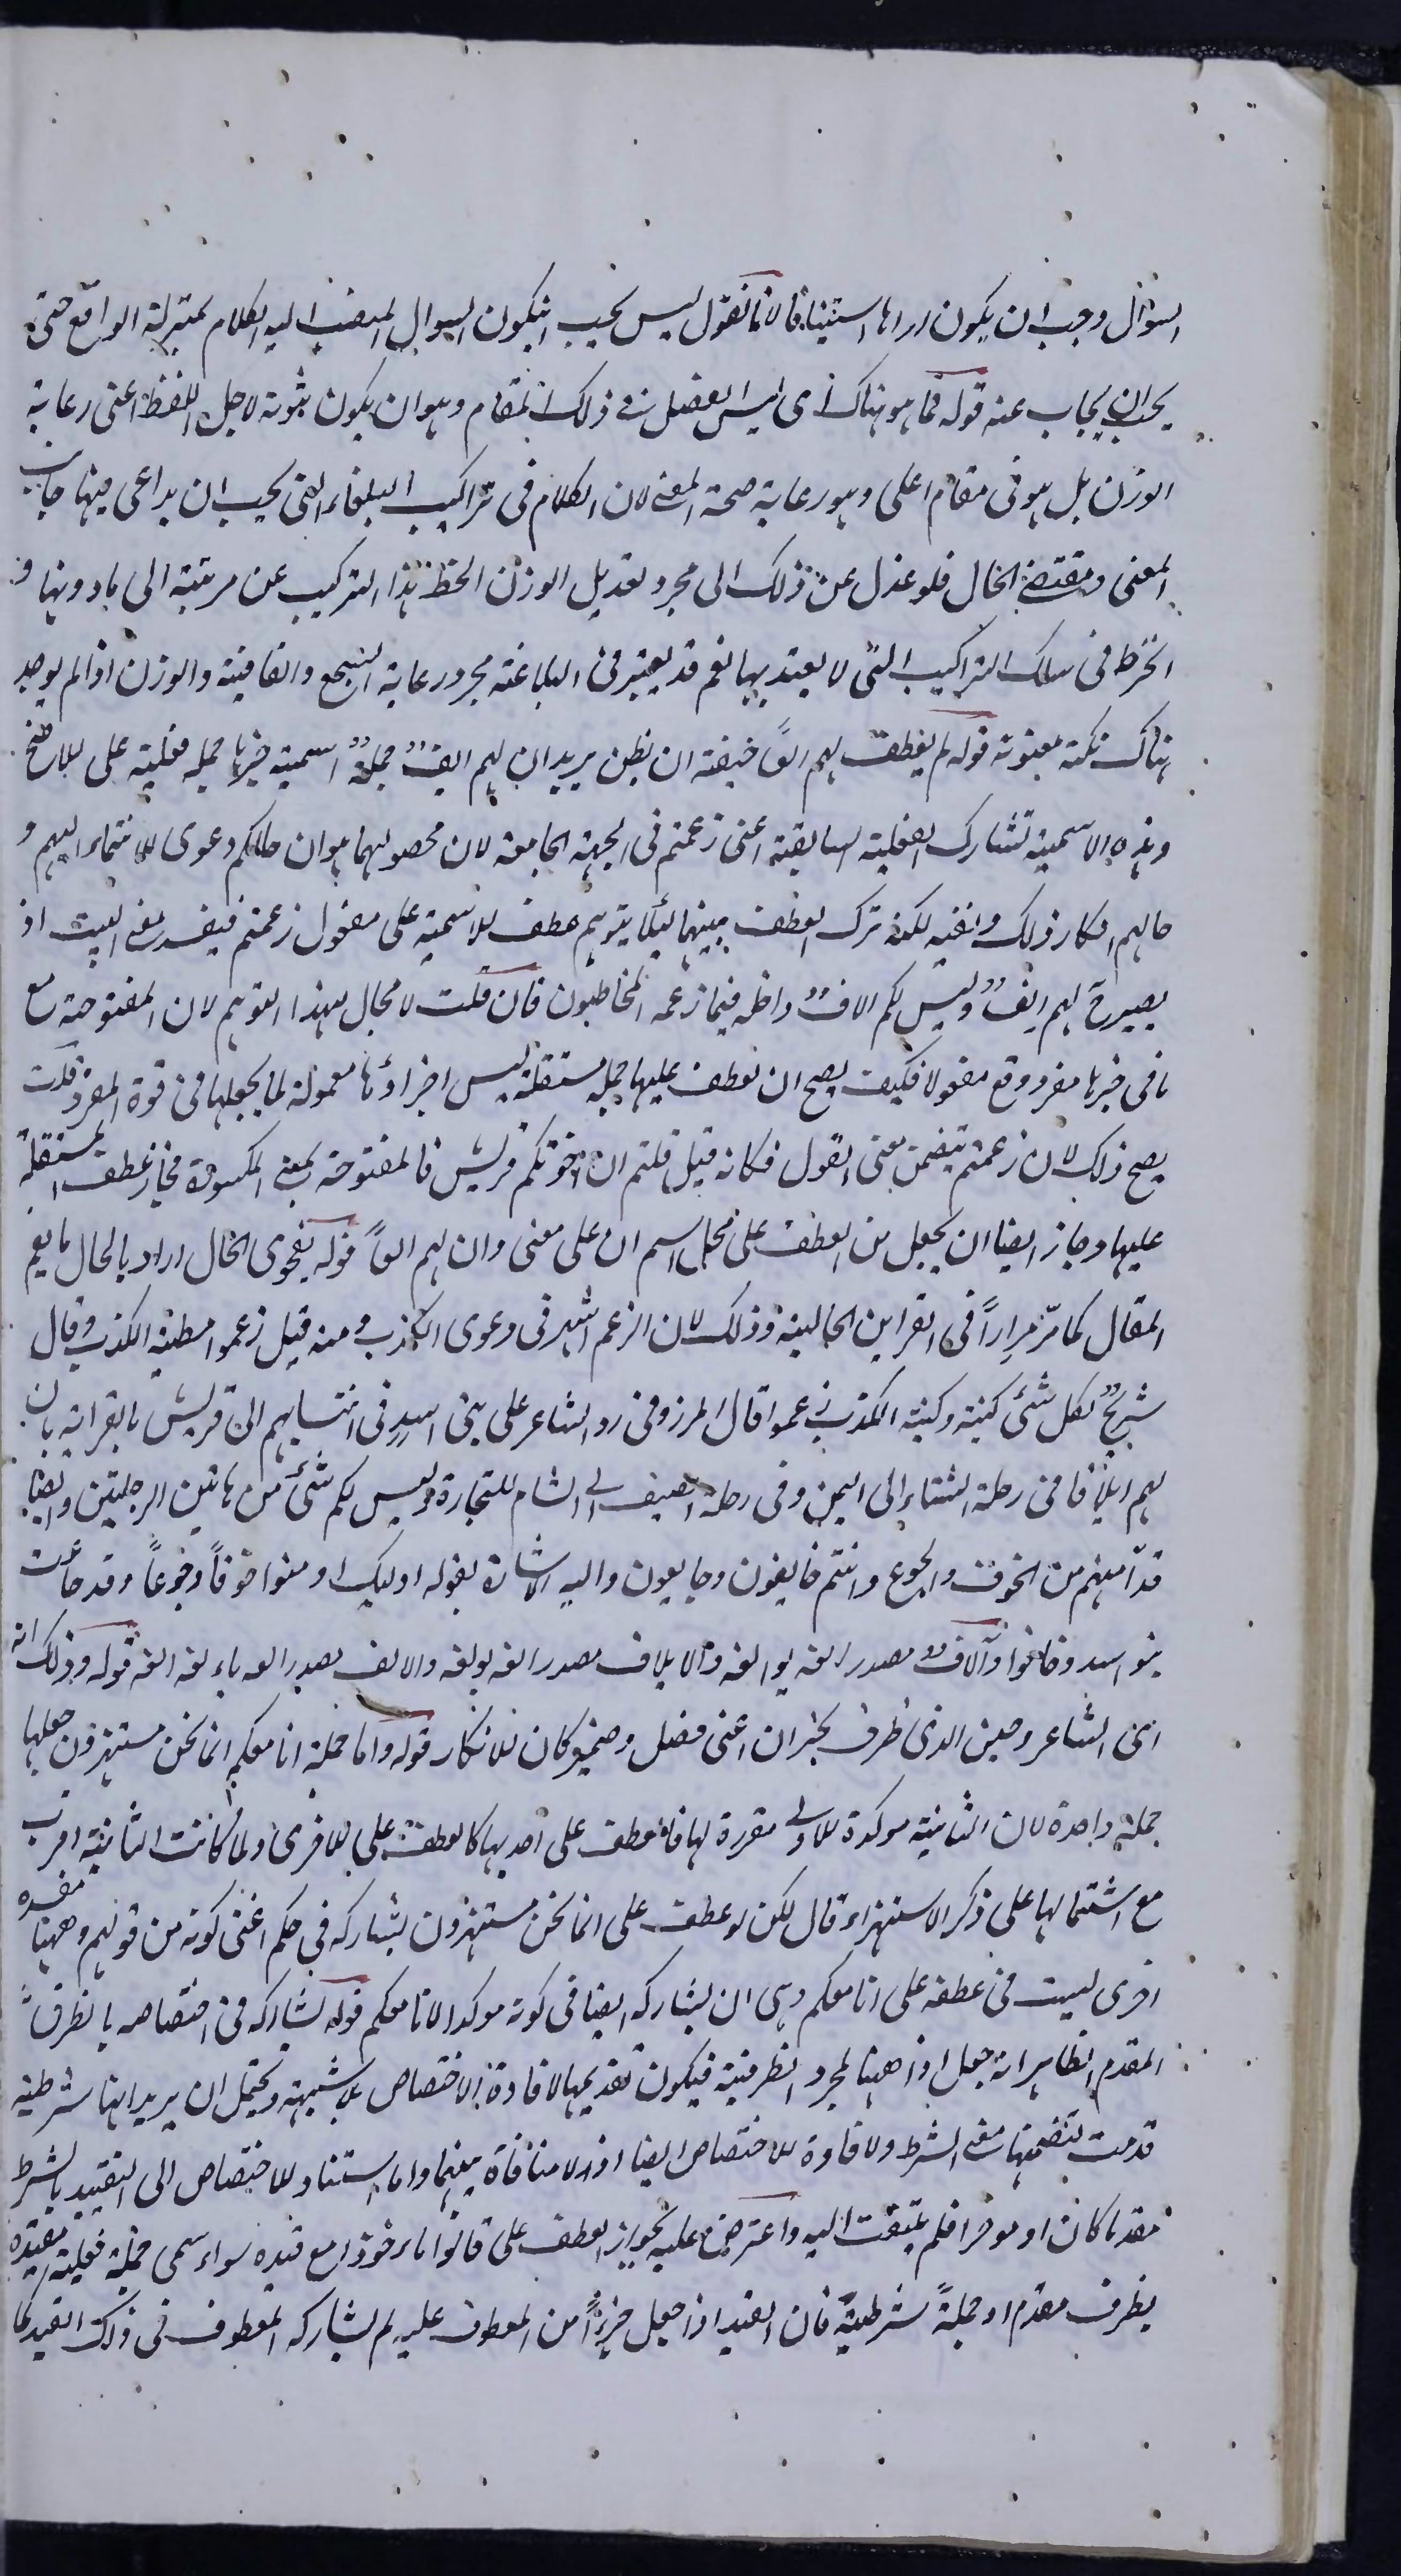 السؤال وجب ان يكون اراها استينافا لانا نقول ليس يجب ان يكون السؤال المنصب اليه الكلام بمنزلة الواقع حتى
يجب ان يجاب عنه قوله فما هو هناك اى ليس الفصل فى ذلك المقام وهو ان يكون ثبوته لاجل اللفظ اعنى رعاية
الوزن بل هو فى مقام اعلى وهو رعاية صحة المعنى لان الكلام فى تراكيب البلغاء التى يجب ان يراعى فيها جانب
المعنى ومقتضى الحال فلو عدل عن ذلك الى مجرد تعديل الوزن انحط هذا التركيب عن مرتبة الى ما دونها و
انخرط فى سلك التراكيب التى لا يعتد بها نعم قد يعتبر فى البلاغة مجرد رعاية السجع والقافية والوزن اذا لم يوجد
هناك نكتة معنوية قوله لم يعطف لهم الفٌ خيفة ان يظن يريد ان لهم الفٌ جملةٌ اسمية خبرها جملة فعلية على الاصح
وهذه الاسمية تشارك الفعلية السابقة اعنى زعمتم فى الجهة الجامعة لان محصولهما هو ان حالكم دعوى الانتماء اليهم و
حالهم انكار ذلك ونفيه لكنه ترك العطف بينهما لئلا يتوهم عطف الاسمية على مفعول زعمتم فيفسد معنى البيت اذ
يصير ح لهم الفٌ وليس لكم الافٌ داخلة فيما زعمه المخاطبون فان قلت لا مجال لهذا التوهم لان المفتوحة مع
ما فى خبرها مفرد وقع مفعولا فكيف يصح ان تعطف عليها جملة مستقلة ليس اجزاؤها معمولة لما يجعلها فى قوة المفرد قلت
يصح ذلك لان زعمتم يتضمن معنى القول فكانه قيل قلتم ان اخوتكم قريش فالمفتوحة بمعنى المكسورة فجاز عطف المستقلة
عليها وجاز ايضا ان يجعل من العطف على محل اسم ان على معنى وان لهم الفاً قوله بفحوى الحال اراد بالحال ما يعم
المقال كما مرّ مراراً فى القراين الحالية وذلك لان الزعم اشهر فى دعوى الكذب ومنه قيل زعموا مطية الكذب وقال
شريحٌ لكل شئ كنية وكنية الكذب زعموا قال المرزوقى رد الشاعر على بنى اسدٍ فى انتسابهم الى قريش بالقرابة بان
لهم ايلافا فى رحلة الشتاء الى اليمن وفى رحلة الصيف الى الشام للتجارة وليس لكم شئ من هاتين الرحلتين وايضا
قد آمنهم من الخوف والجوع وانتم خايفون وجايعون واليه الاشارة بقوله اوليك اومنوا خوفاً وجوعاً وقد جاعت
بنو اسد وخافوا وآلافٌ مصدر الفه يوالفه والايلاف مصدر الفه يولفه والالف مصدر الفه يالفه الفه قوله وذلك انه
اى الشاعر وحين الذى ظرف لخبر ان اعنى فصل وضمير كان للانكار قوله واما جملة انا معكم انما نحن مستهزؤن جعلها
جملة واحدة لان الثانية موكدة للاولى مقررة لها فالعطف على احديها كالعطف على الاخرى ولما كانت الثانية اقرب
مع اشتمالها على ذكر الاستهزاء قال لكن لو عطف على انما نحن مستهزؤن لشاركه فى حكم اعنى كونه من قولهم وههنا مفسدة
اخرى ليست فى عطفه على انا معكم وهى ان يشاركه ايضا فى كونه موكدا لانا معكم قوله لشاركه فى اختصاصه بالظرف
المقدم الظاهر انه جعل اذا ههنا لمجرد الظرفية فيكون تقديمها لافادة الاختصاص بلا شبهة ويحتمل ان يريد انها شرطية
قدمت لتضمنها معنى الشرط ولافادة الاختصاص ايضا اذ لا منافاة بينهما واما استناد الاختصاص الى التقييد بالشرط
مقدما كان او موخرا فلم يلتفت اليه واعترض عليه بجواز العطف على قالوا ماخوذا مع قيده سواء سمى جملة فعلية مقيدة
بظرف مقدم او جملةً شرطيةً فان القيد اذا جعل جزءاً من المعطوف عليه لم يشاركه المعطوف فى ذلك القيد كما